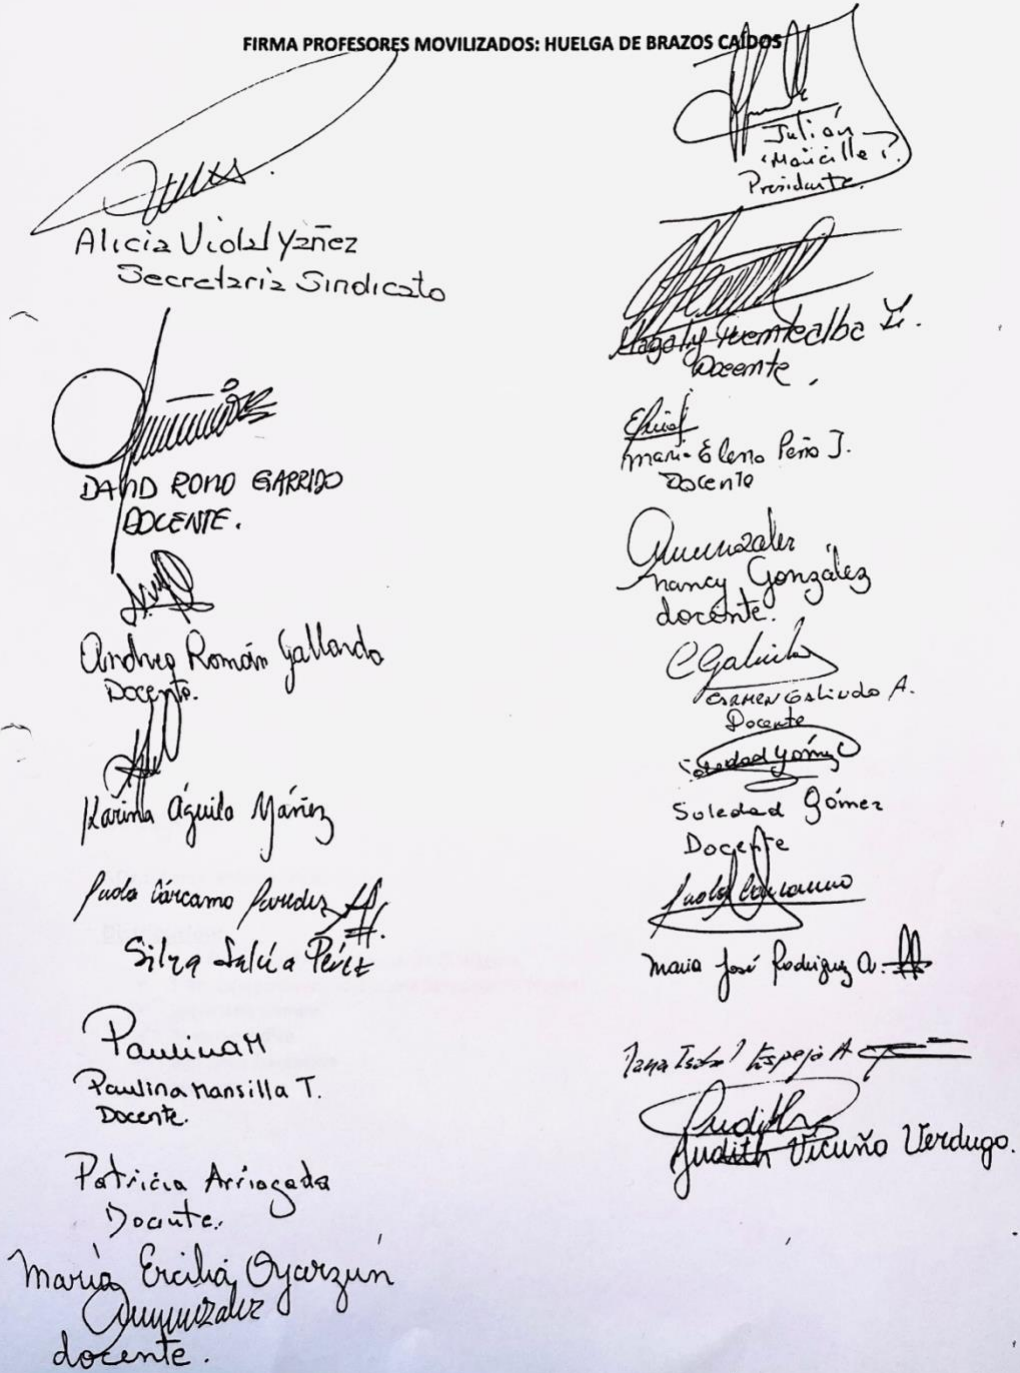 FIRMA PROFESORES MOVILIZADOS: HUELGA DE BRAZOS CAÍDOS
Alicia Vidal Yañez
Secretaria Sindicato
DAVID ROMO GARRIDO
DOCENTE.
Andrea Román Gallardo
Docente.
Karina Águila Yáñez
Paola Cárcamo Paredes
Silva Pérez
PaulinaM
Paulina Mansilla T.
Docente.
Patricia Arriagada
Docente.
María Ercilia Oyarzún
docente.
Julián
Mancilla P.
Presidente.
Magaly Fuentealba
Docente
María Elena Peña J.
Docente
Nancy González
docente.
CARMEN Galindo A.
Docente
Soledad Gómez
Soledad Gómez
Docente
María José Rodríguez A.
Isabel Espejo A
Judith
Judith Vicuña Verdugo.